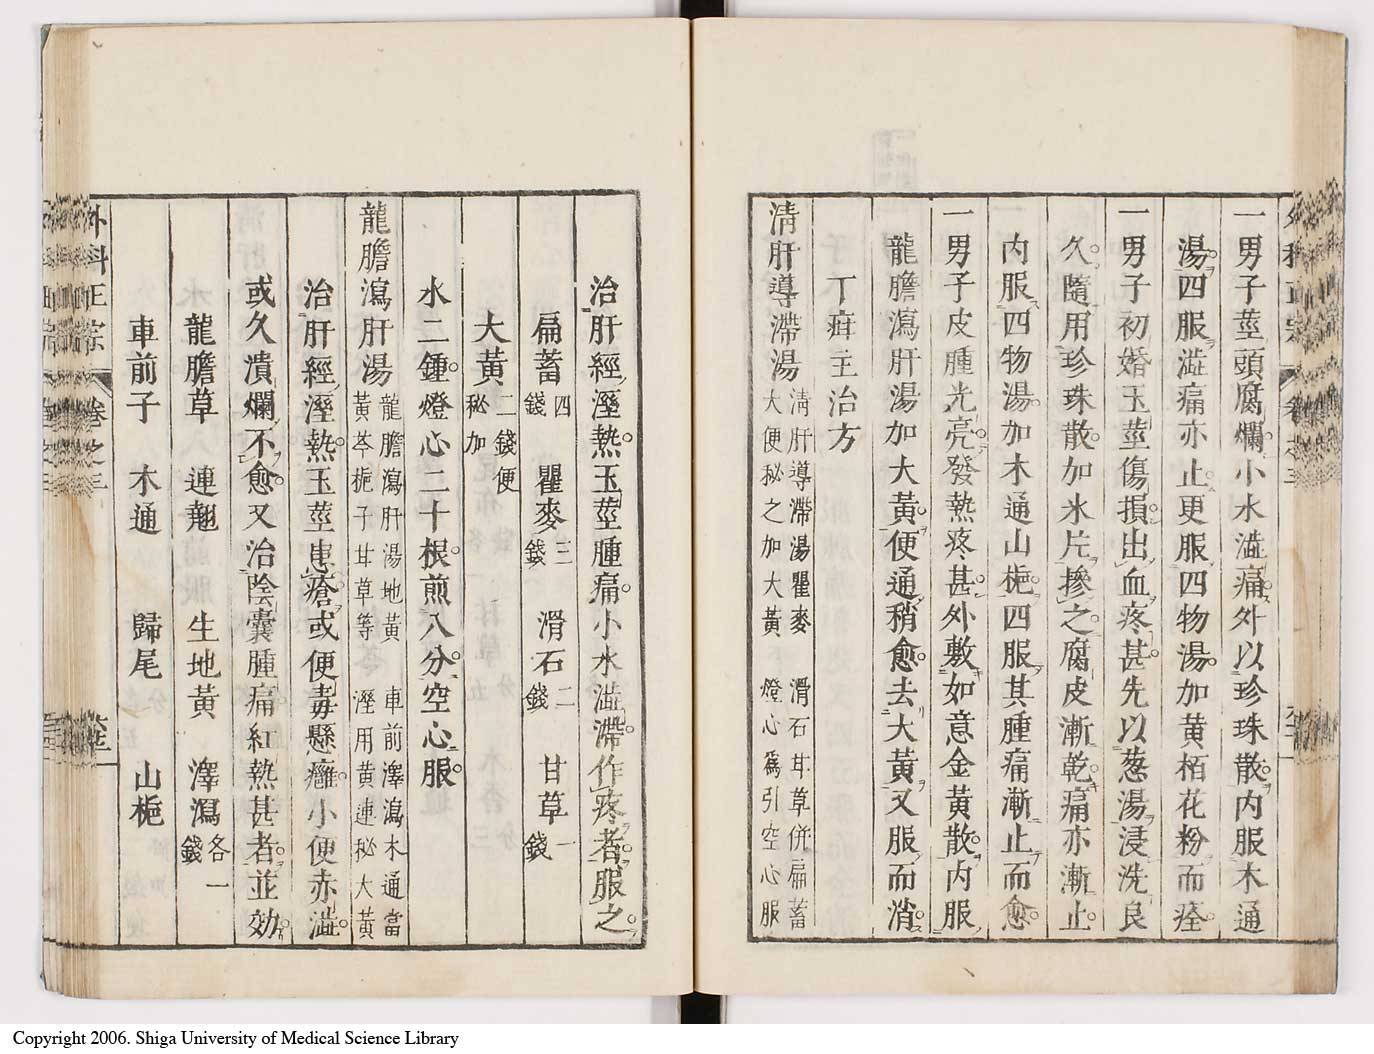 一男子莖頭腐爛小水澁痛外以珍珠散内服木通
湯四服澁痛亦止更服四物湯加黄栢花粉而痊
一男子初婚玉莖傷損出血疼甚先以葱湯浸洗良
久隨用珍珠散加氷片摻之腐皮漸乾痛亦漸止
内服四物湯加木通山梔四服其腫痛漸止而愈
一男子皮腫光亮發熱疼甚外敷如意金黄散内服
龍膽瀉肝湯加大黄便通稍愈去大黄又服而消
下疳主治方
淸肝導滯湯
淸肝導滯湯瞿麥 滑石甘草併扁蓄
大便秘之加大黄 燈心爲引空心服
治肝經溼熱玉莖腫痛小水澁滯作疼者服之
扁蓄四錢 瞿麥三錢 滑石二錢 甘草一錢
大黄二錢便秘加
水二鍾燈心二十根煎八分空心服
龍膽瀉肝湯
龍膽瀉肝湯地黄 車前澤瀉木通當
黄芩梔子甘草等 溼用黄連秘大黄
治肝經溼熱玉莖患瘡或便毒懸癰小便赤澁
或久潰爛不愈又治陰囊腫痛紅熱甚者並効
龍膽草 連翹 生地黄 澤瀉各一錢
車前子 木通 歸尾 山梔
外科正宗 卷之三 六十二
Copyright 2006. Shiga University of Medical Science Library